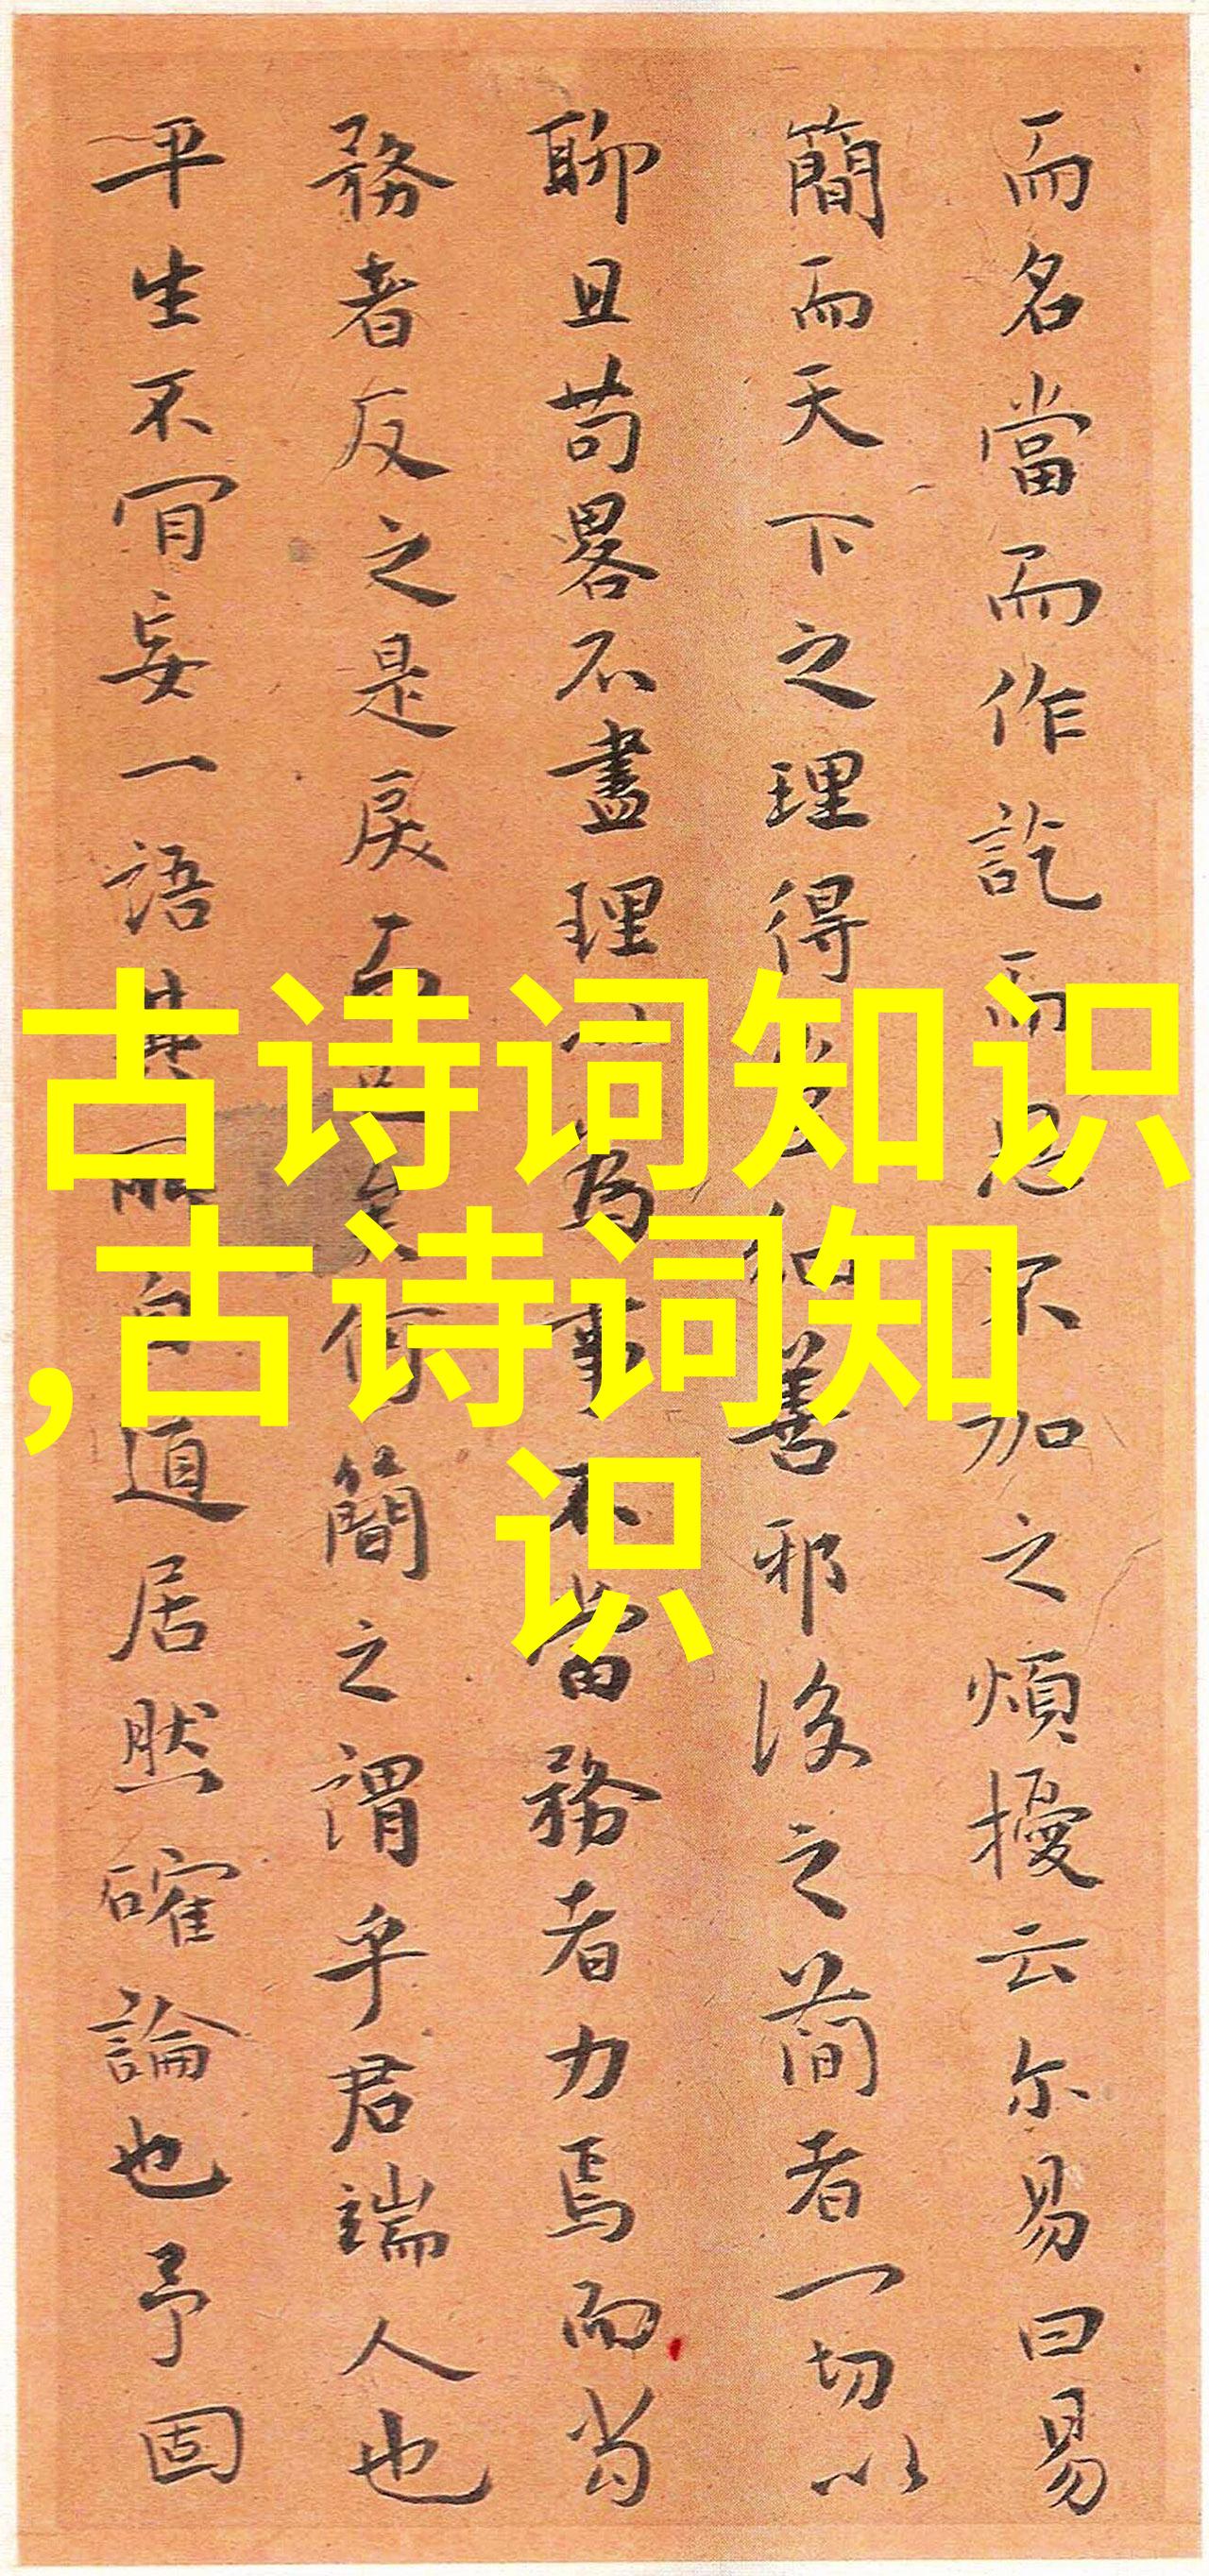 而名當而作訖而思不加之煩擾云尔易曰易
簡而天下之理得善邪後之簡者一切以
聊且苟畧不盡理為事不當務者力焉而苟
務者反之是戾而何簡之謂乎君端人也
平生不肎妄一語其所自道居然確論也予固
古诗词知识
,古诗词知
识